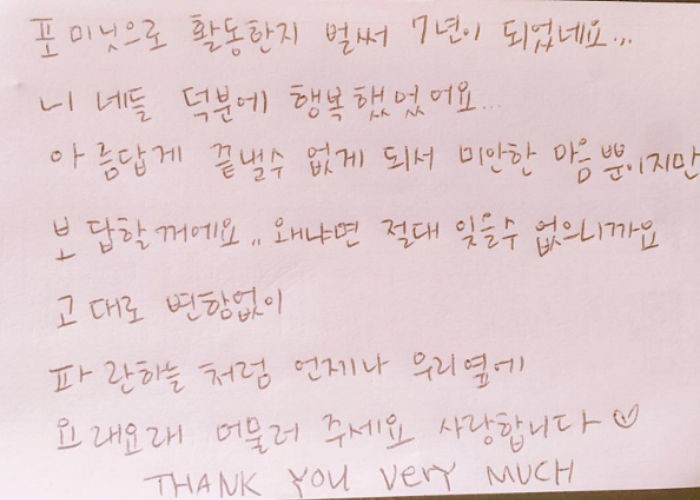 포미닛으로 활동한지 벌써 7년이 되었네요...
니네들 덕분에 행복했었어요...
아름답게 끝낼수 없게 되서 미안한 마음뿐이지만
보답할꺼에요.. 왜냐면 절대 잊을수 없으니까요
고대로 변함없이
파란하늘처럼 언제나 우리옆에
요래요래 머물러 주세요 사랑합니다♡
THANK YOU VERY MUCH